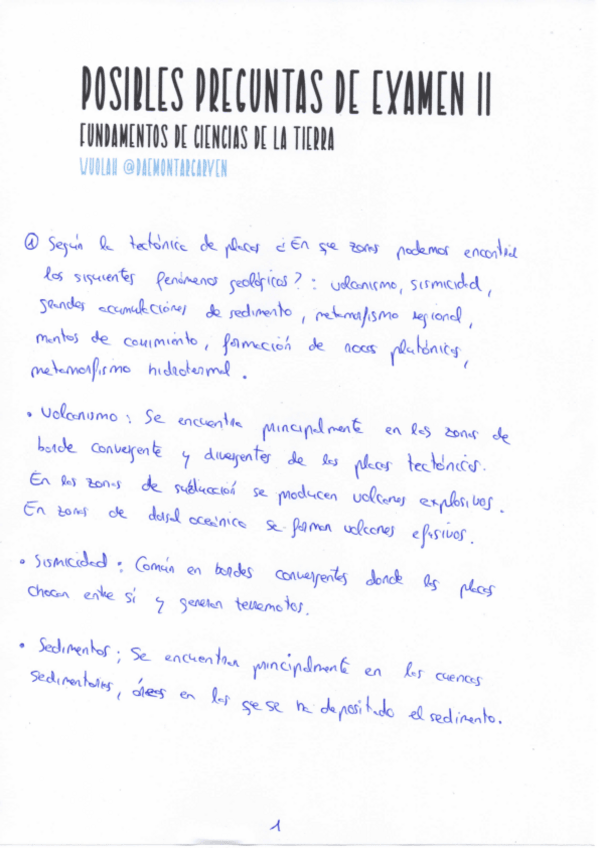 POSIBLES PREGUNTAS DE EXAMEN II
FUNDAMENTOS DE CIENCIAS DE LA TIERRA
WUOLAH @DAEMONTARGARYEN
① Según la tectónica de placas ¿En que zonas podemos encontrar
los siguientes fenómenos geológicos? : volcanismo, sismicidad,
grandes acumulaciones de sedimento, metamorfismo regional,
mantos de corrimiento, formación de rocas plutónicas,
metamorfismo hidrotermal.
• Volcanismo: Se encuentra principalmente en las zonas de
borde convergente y divergentes de las placas tectónicas.
En las zonas de subducción se producen volcanes explosivos.
En zonas de dorsal oceánica se forman volcanes efusivos.
• Sismicidad: Común en bordes convergentes donde las placas
chocan entre sí y generan terremotos.
• Sedimentos; Se encuentran principalmente en las cuencas
sedimentarias, áreas en las que se ha depositado el sedimento.
1